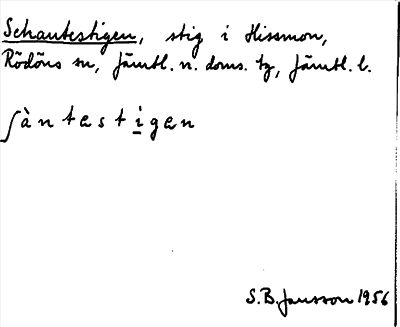 Schantestigen, stig i Hissmon,
Rödöns sn, Jämtl. n. doms. tg, Jämtl. l.
ʃàntestigen
S.B. Jansson 1956